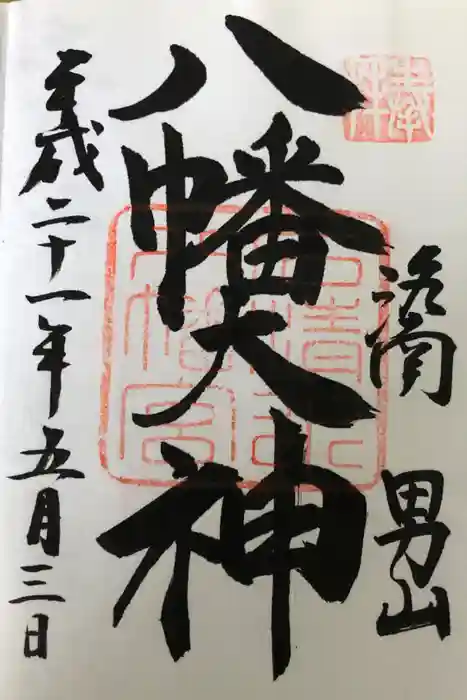 洛南 男山
八幡大神
石清水
八幡宮
平成二十一年五月三日